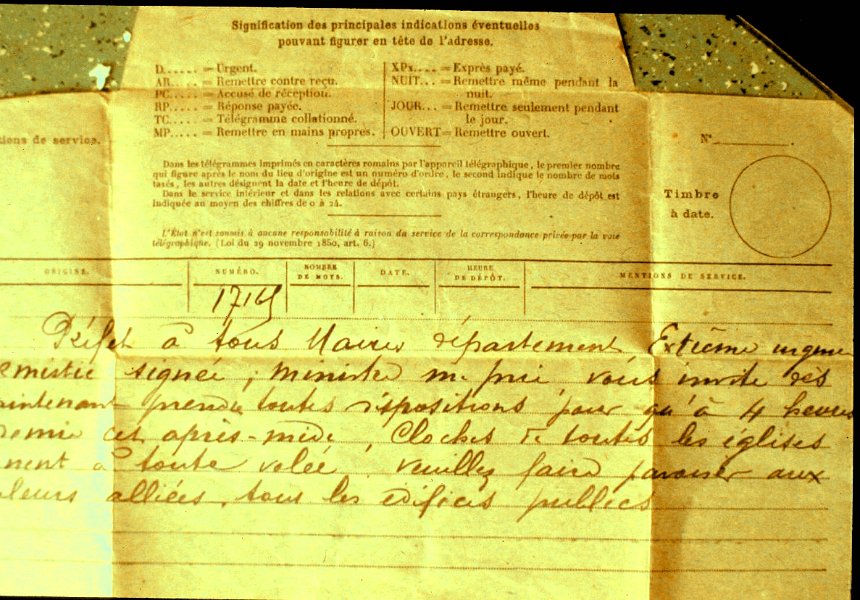 Signification des principales indications éventuelles
pouvant figurer en tête de l'adresse.
D...... = Urgent.
AR..... = Remettre contre reçu.
PC..... = Accusé de réception.
RP..... = Réponse payée.
TC..... = Télégramme collationné.
MP..... = Remettre en mains propres.
XPx.... = Exprès payé.
NUIT... = Remettre même pendant la
nuit.
JOUR... = Remettre seulement pendant
le jour.
OUVERT = Remettre ouvert.
tions de service.
N°
Dans les télégrammes imprimés en caractères romains par l'appareil télégraphique, le premier nombre
qui figure après le nom du lieu d'origine est un numéro d'ordre, le second indique le nombre de mots
taxés, les autres désignent la date et l'heure de dépôt.
Dans le service intérieur et dans les relations avec certains pays étrangers, l'heure de dépôt est
indiquée au moyen des chiffres de 0 à 24.
Timbre
à date.
L'État n'est soumis à aucune responsabilité à raison du service de la correspondance privée par la voie
télégraphique. (Loi du 29 novembre 1850, art. 6.)
ORIGINE.
NUMÉRO.
NOMBRE
DE MOTS.
DATE.
HEURE
DE DÉPÔT.
MENTIONS DE SERVICE.
Préfet à tous Maires département Extrême urgence
mistice signée ; ministre me prie vous invite dès
maintenant prendre toutes dispositions pour qu'à 4 heures
demie cet après-midi, cloches de toutes les églises
nent à toute volée. veuillez faire pavoiser aux
leurs alliées, tous les édifices publics